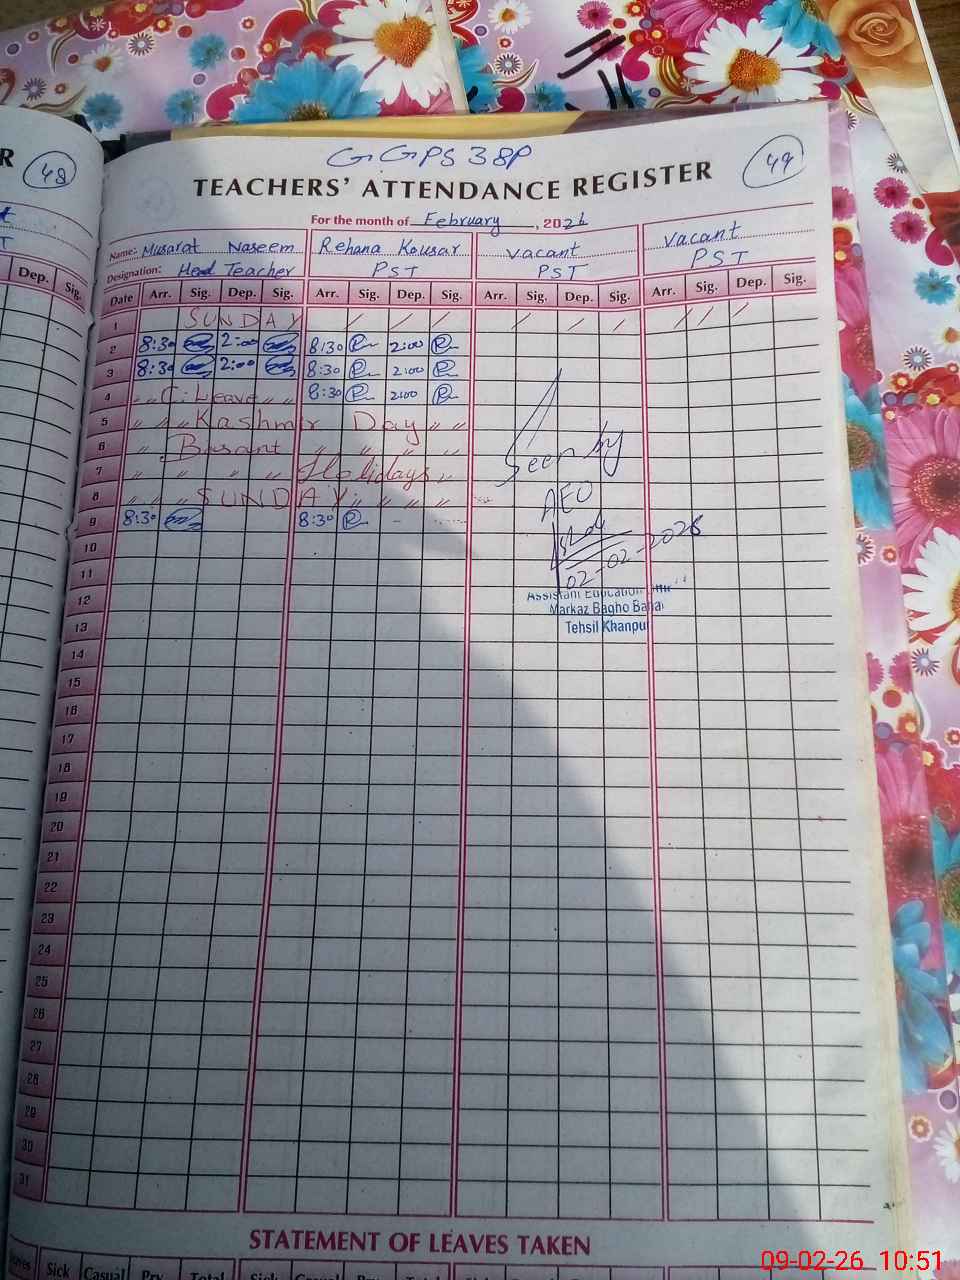 R
48
GGPS 38P
49
TEACHERS' ATTENDANCE REGISTER
For the month of February, 2026
Name: Musarat Naseem Rehana Kousar vacant vacant
Designation: Head Teacher PST PST PST
Dep. Sig.
Date Arr. Sig. Dep. Sig. Arr. Sig. Dep. Sig. Arr. Sig. Dep. Sig. Arr. Sig. Dep. Sig.
1 SUNDAY / / / / / / / / / /
2 8:30 2:00 8:30 2:00
3 8:30 2:00 8:30 2:00
4 " " C. Leave " " 8:30 2:00
5 " " " Kashmir Day " "
6 " Basant " " " " "
7 " " " " " Holidays "
8 " " " SUNDAY " " " "
9 8:30 8:30
Seen by
AEO
02-02-2026
Assistant Education
Markaz Bagho Bahar
Tehsil Khanpur
10
11
12
13
14
15
16
17
18
19
20
21
22
23
24
25
26
27
28
29
30
31
STATEMENT OF LEAVES TAKEN
Sick Casual Prv. Total Sick Casual Prv. Total
09-02-26 10:51